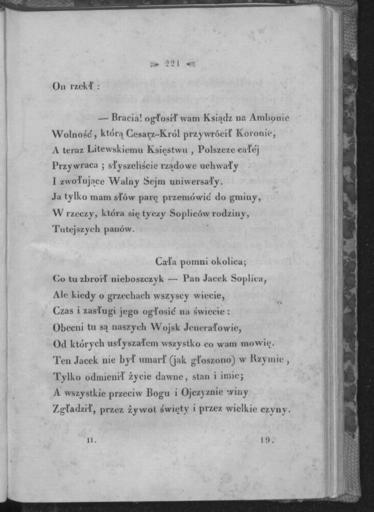 221
On rzekł :
— Bracia! ogłosił wam Ksiądz na Ambonie
Wolność, którą Cesarz-Król przywrócił Koronie,
A teraz Litewskiemu Księstwu , Polszcze całéj
Przywraca ; słyszeliście rządowe uchwały
I zwołujące Walny Sejm uniwersały.
Ja tylko mam słów parę przemówić do gminy,
W rzeczy, która się tyczy Sopliców rodziny,
Tutejszych panów.
Cała pomni okolica;
Co tu zbroił nieboszczyk — Pan Jacek Soplica,
Ale kiedy o grzechach wszyscy wiecie,
Czas i zasługi jego ogłosić na świecie :
Obecni tu są naszych Wojsk Jenerałowie,
Od których usłyszałem wszystko co wam mowię.
Ten Jacek nie był umarł (jak głoszono) w Rzymie ,
Tylko odmienił życie dawne, stan i imie;
A wszystkie przeciw Bogu i Ojczyznie winy
Zgładził, przez żywot święty i przez wielkie czyny.
II. 19.